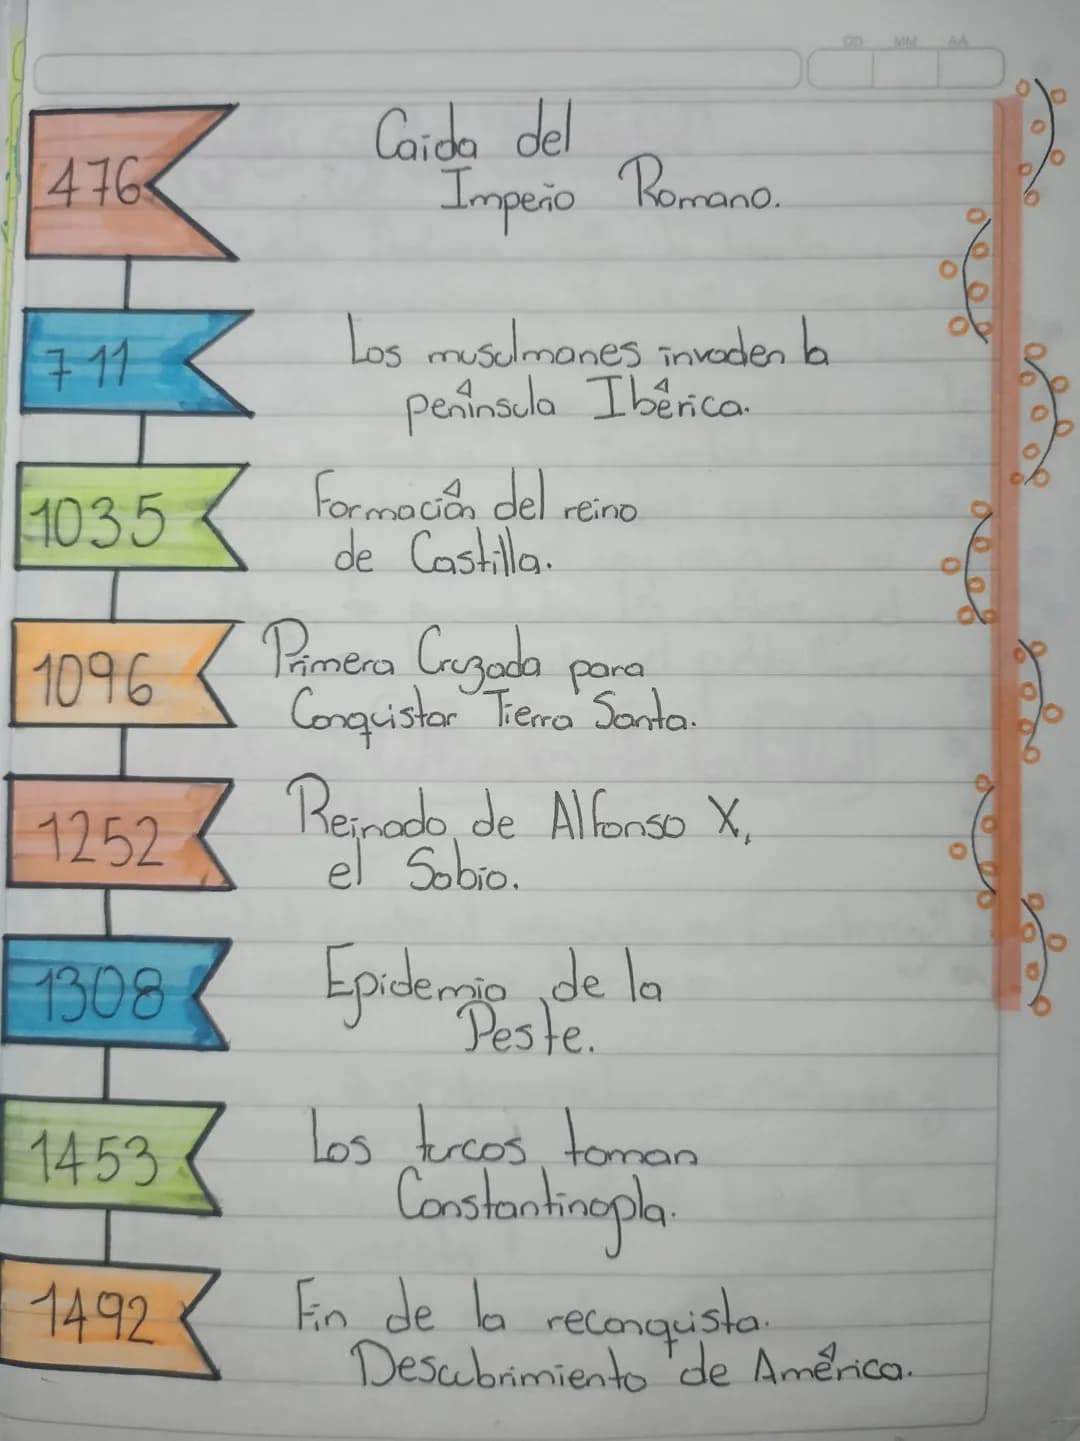 DD MM AA
476
Caida del
Imperio Romano.
711
Los musulmanes invaden la
península Ibérica.
1035
Formación del reino
de Castilla.
1096
Primera Cruzada para
Conquistar Tierra Santa.
1252
Reinado de Alfonso X,
el Sabio.
1308
Epidemia de la
Peste.
1453
Los turcos toman
Constantinopla.
1492
Fin de la reconquista.
Descubrimiento de América.